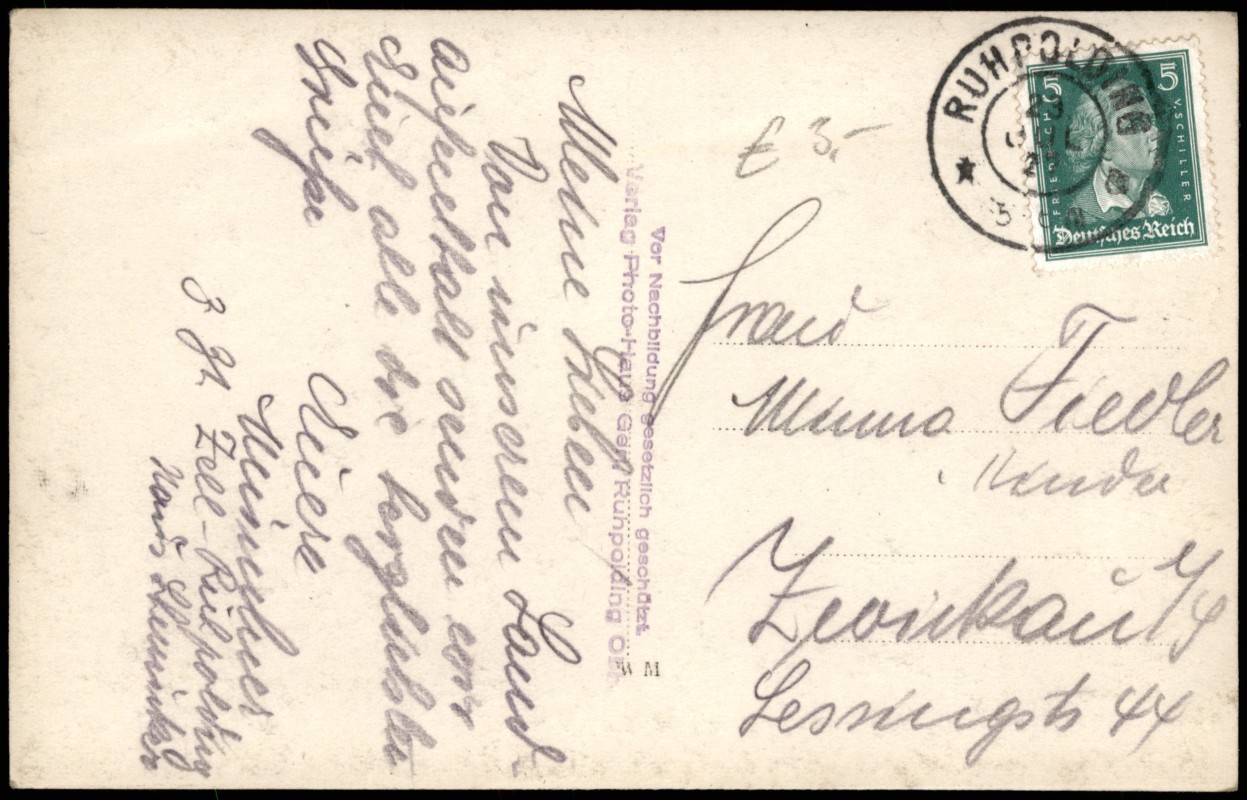 Meine Lieben
Von unserem Land
aufenthalt senden wir
Euch alle die herzlichsten
Grüße
Eure
Münchner
z Zt Zell-Ruhpolding
Haus
Vor Nachbildung gesetzlich geschützt.
Verlag Photo-Haus Ruhpolding
W M
€ 3,-
RUHPOLDING
5 5
FRIEDRICH V. SCHILLER
Deutsches Reich
Frau
Minna Fiedler
Zwickau i/S
Lessingstr 44